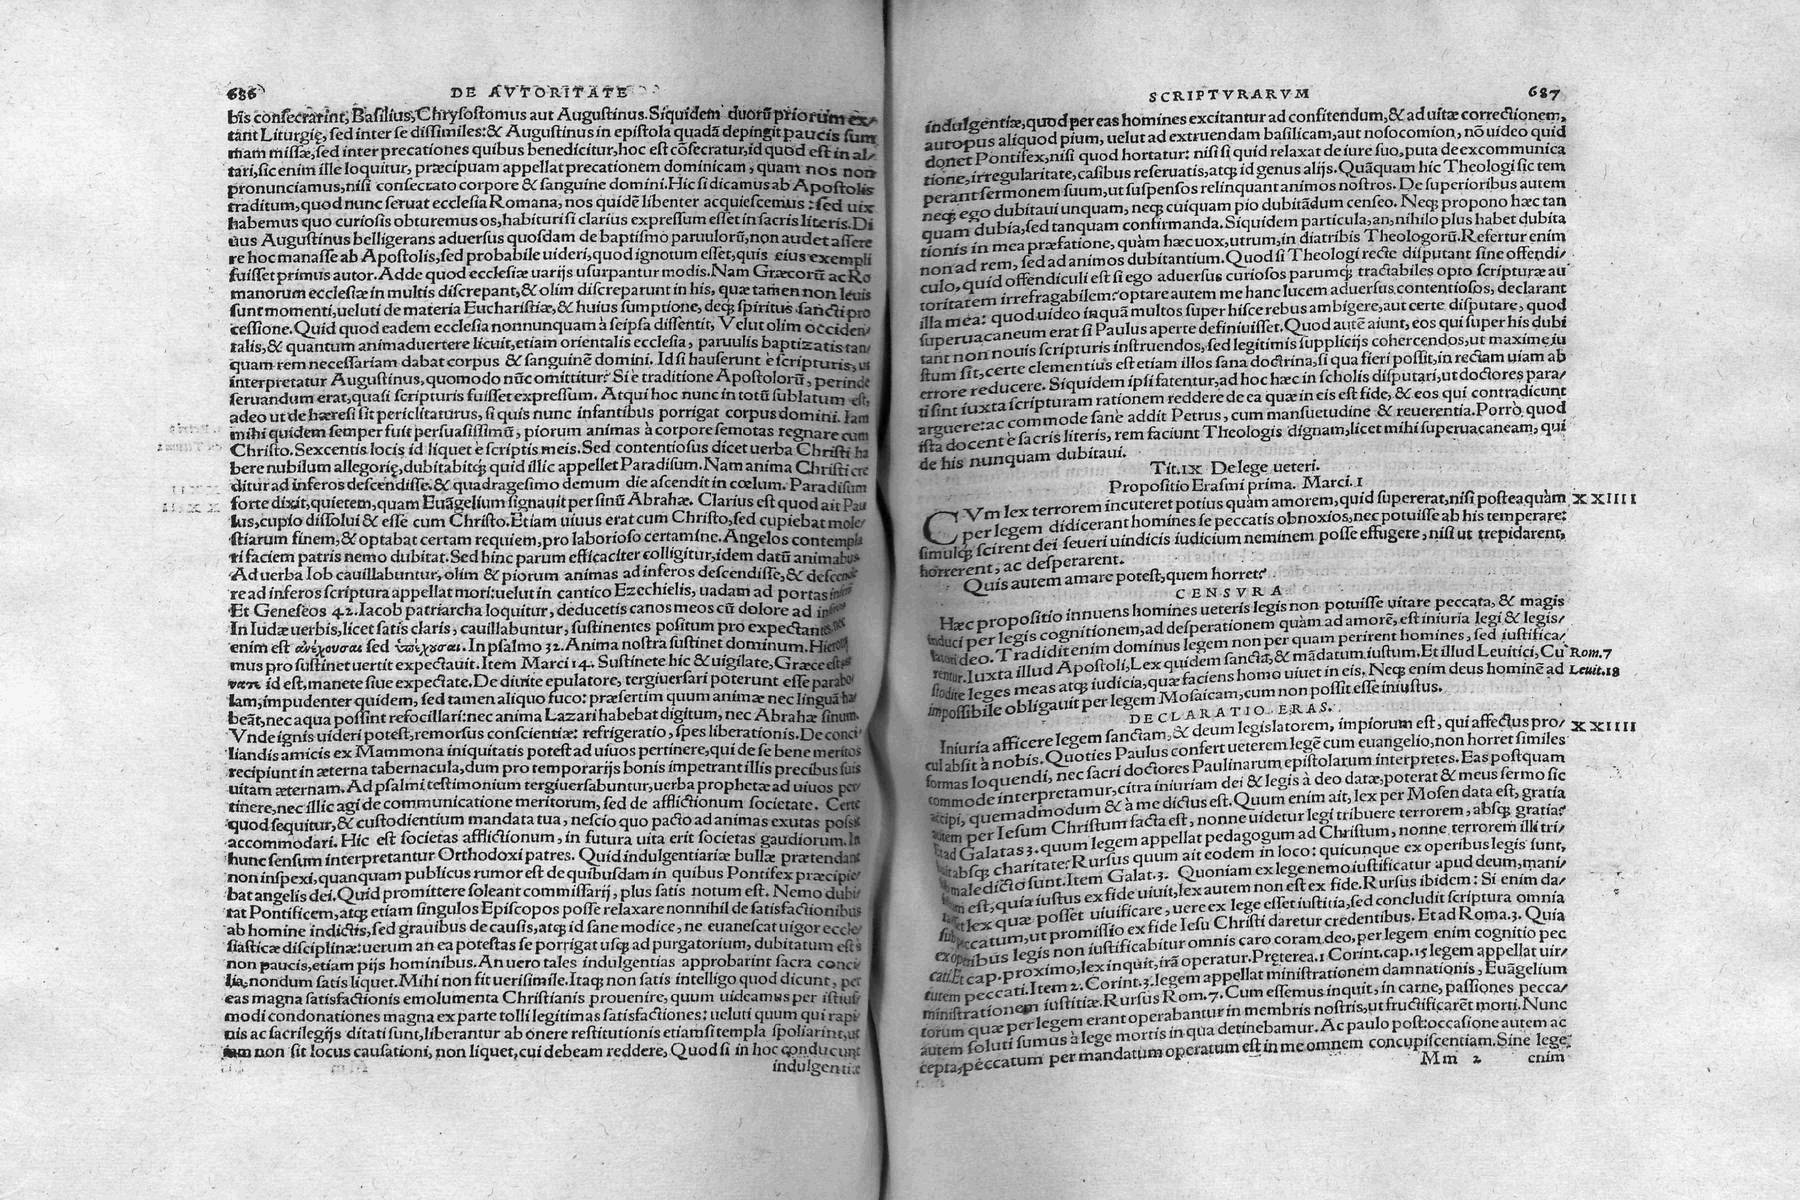 686 DE AVTORITATE
bis consecrarint, Basilius, Chrysostomus aut Augustinus. Siquidem duorũ priorum ex-
tant Liturgię, sed inter se dissimiles: & Augustinus in epistola quadã depingit paucis sum
mam missæ, sed inter precationes quibus benedicitur, hoc est cõsecratur, id quod est in al-
tari, sic enim ille loquitur, præcipuam appellat precationem dominicam, quam nos non
pronunciamus, nisi consecrato corpore & sanguine domini. Hic si dicamus ab Apostolis
traditum, quod nunc seruat ecclesia Romana, nos quidẽ libenter acquiescemus: sed uix
habemus quo curiosis obturemus os, habituri si clarius expressum esset in sacris literis. Di
uus Augustinus belligerans aduersus quosdam de baptismo paruulorũ, non audet assere
re hoc manasse ab Apostolis, sed probabile uideri, quod ignotum esset, quis eius exempli
fuisset primus autor. Adde quod ecclesiæ uarijs usurpantur modis. Nam Græcorũ ac Ro
manorum ecclesiæ in multis discrepant, & olim discreparunt in his, quæ tamen non leuis
sunt momenti, ueluti de materia Eucharistiæ, & huius sumptione, deq; spiritus sancti pro
cessione. Quid quod eadem ecclesia nonnunquam à seipsa dissentit, Velut olim occiden-
talis, & quantum animaduertere licuit, etiam orientalis ecclesia, paruulis baptizatis tan-
quam rem necessariam dabat corpus & sanguinẽ domini. Id si hauserunt è scripturis, ut
interpretatur Augustinus, quomodo nũc omittitur? Si è traditione Apostolorũ, perinde
seruandum erat, quasi scripturis fuisset expressum. Atqui hoc nunc in totũ sublatum est,
adeo ut de hæresi sit periclitaturus, si quis nunc infantibus porrigat corpus domini. Iam
mihi quidem semper fuit persuasissimũ, piorum animas à corpore semotas regnare cum
Christo. Sexcentis locis id liquet è scriptis meis. Sed contentiosus dicet uerba Christi ha
bere nubilum allegorię, dubitabitq; quid illic appellet Paradisum. Nam anima Christi cre
ditur ad inferos descendisse, & quadragesimo demum die ascendit in cœlum. Paradisum
forte dixit, quietem, quam Euãgelium signauit per sinũ Abrahæ. Clarius est quod ait Pau
lus, cupio dissolui & esse cum Christo. Etiam uiuus erat cum Christo, sed cupiebat mole-
stiarum finem, & optabat certam requiem, pro laborioso certamine. Angelos contempla
ri faciem patris nemo dubitat. Sed hinc parum efficaciter colligitur, idem datũ animabus.
Ad uerba Iob cauillabuntur, olim & piorum animas ad inferos descendisse, & descende
re ad inferos scriptura appellat mori: uelut in cantico Ezechielis, uadam ad portas inferi.
Et Geneseos 42. Iacob patriarcha loquitur, deducetis canos meos cũ dolore ad inferos
In Iudæ uerbis, licet satis claris, cauillabuntur, sustinentes positum pro expectantes, nec
enim est ἀνέχουσαι sed ὑπέχουσαι. In psalmo 32. Anima nostra sustinet dominum. Hierony
mus pro sustinet uertit expectauit. Item Marci 14. Sustinete hic & uigilate, Græce est
id est, manete siue expectate. De diuite epulatore, tergiuersari poterunt esse parabo
lam, impudenter quidem, sed tamen aliquo fuco: præsertim quum animæ nec linguã ha-
beãt, nec aqua possint refocillari: nec anima Lazari habebat digitum, nec Abrahæ sinum.
Vnde ignis uideri potest, remorsus conscientiæ: refrigeratio, spes liberationis. De conci
liandis amicis ex Mammona iniquitatis potest ad uiuos pertinere, qui de se bene meritos
recipiunt in æterna tabernacula, dum pro temporarijs bonis impetrant illis precibus suis
uitam æternam. Ad psalmi testimonium tergiuersabuntur, uerba prophetæ ad uiuos per
tinere, nec illic agi de communicatione meritorum, sed de afflictionum societate. Certe
quod sequitur, & custodientium mandata tua, nescio quo pacto ad animas exutas possit
accommodari. Hic est societas afflictionum, in futura uita erit societas gaudiorum. In
hunc sensum interpretantur Orthodoxi patres. Quid indulgentiariæ bullæ prætendant
non inspexi, quanquam publicus rumor est de quibusdam in quibus Pontifex præcipie-
bat angelis dei. Quid promittere soleant commissarij, plus satis notum est. Nemo dubi-
tat Pontificem, atq; etiam singulos Episcopos posse relaxare nonnihil de satisfactionibus
ab homine indictis, sed grauibus de causis, atq; id sane modice, ne euanescat uigor eccle-
siasticæ disciplinæ: uerum an ea potestas se porrigat usq; ad purgatorium, dubitatum est
non paucis, etiam pijs hominibus. An uero tales indulgentias approbarint sacra conci-
lia, nondum satis liquet. Mihi non fit uerisimile. Itaq; non satis intelligo quod dicunt, per
eas magna satisfactionis emolumenta Christianis prouenire, quum uideamus per istius-
modi condonationes magna ex parte tolli legitimas satisfactiones: ueluti quum qui rapi-
nis ac sacrilegijs ditati sunt, liberantur ab onere restitutionis etiamsi templa spoliarint, ut
iam non sit locus causationi, non liquet, cui debeam reddere, Quod si in hoc conducunt
indulgentiæ
SCRIPTVRARVM 687
indulgentiæ, quod per eas homines excitantur ad confitendum, & ad uitæ correctionem,
aut opus aliquod pium, uelut ad extruendam basilicam, aut nosocomion, nõ uideo quid
donet Pontifex, nisi quod hortatur: nisi si quid relaxat de iure suo, puta de excommunica
tione, irregularitate, casibus reseruatis, atq; id genus alijs. Quãquam hic Theologi sic tem
perant sermonem suum, ut suspensos relinquant animos nostros. De superioribus autem
neq; ego dubitaui unquam, neq; cuiquam pio dubitãdum censeo. Neq; propono hæc tan
quam dubia, sed tanquam confirmanda. Siquidem particula, an, nihilo plus habet dubita
tionis in mea præfatione, quàm hæc uox, utrum, in diatribis Theologorũ. Refertur enim
non ad rem, sed ad animos dubitantium. Quod si Theologi recte disputant sine offendi-
culo, quid offendiculi est si ego aduersus curiosos parumq; tractabiles opto scripturæ au
toritatem irrefragabilem? optare autem me hanc lucem aduersus contentiosos, declarant
illa mea: quod uideo iã quã multos super hisce rebus ambigere, aut certe disputare, quod
superuacaneum erat si Paulus aperte definiuisset. Quod autẽ aiunt, eos qui super his dubi
tant non nouis scripturis instruendos, sed legitimis supplicijs cohercendos, ut maxime iu
stum sit, certe clementius est etiam illos sana doctrina, si qua fieri possit, in rectam uiam ab
errore reducere. Siquidem ipsi fatentur, ad hoc hæc in scholis disputari, ut doctores para-
ti sint iuxta scripturam rationem reddere de ea quæ in eis est fide, & eos qui contradicunt
arguere: ac commode sanè addit Petrus, cum mansuetudine & reuerentia. Porrò quod
ista docent è sacris literis, rem faciunt Theologis dignam, licet mihi superuacaneam, qui
de his nunquam dubitaui.
Tit. IX De lege ueteri.
Propositio Erasmi prima. Marci. 1
CVm lex terrorem incuteret potius quàm amorem, quid supererat, nisi posteaquàm XXIIII
per legem didicerant homines se peccatis obnoxios, nec potuisse ab his temperare:
simulq; scirent dei seueri uindicis iudicium neminem posse effugere, nisi ut trepidarent,
horrerent, ac desperarent.
Quis autem amare potest, quem horret?
CENSVRA
Hæc propositio innuens homines ueteris legis non potuisse uitare peccata, & magis
induci per legis cognitionem, ad desperationem quàm ad amorẽ, est iniuria legi & legis-
latori deo. Tradidit enim dominus legem non per quam perirent homines, sed iustifica-
rentur. Iuxta illud Apostoli, Lex quidem sancta, & mãdatum iustum. Et illud Leuitici, Cu Rom. 7
stodite leges meas atq; iudicia, quæ faciens homo uiuet in eis. Neq; enim deus hominẽ ad Leuit. 18
impossibile obligauit per legem Mosaicam, cum non possit esse iniustus.
DECLARATIO ERAS.
Iniuria afficere legem sanctam, & deum legislatorem, impiorum est, qui affectus pro- XXIIII
cul absit à nobis. Quoties Paulus confert ueterem legẽ cum euangelio, non horret similes
formas loquendi, nec sacri doctores Paulinarum epistolarum interpretes. Eas postquam
commode interpretamur, citra iniuriam dei & legis à deo datæ, poterat & meus sermo sic
accipi, quemadmodum & à me dictus est. Quum enim ait, lex per Mosen data est, gratia
autem per Iesum Christum facta est, nonne uidetur legi tribuere terrorem, absq; gratia?
Et ad Galatas 3. quum legem appellat pedagogum ad Christum, nonne terrorem illi tri-
buit absq; charitate? Rursus quum ait eodem in loco: quicunque ex operibus legis sunt,
sub maledicto sunt. Item Galat. 3. Quoniam ex lege nemo iustificatur apud deum, mani-
festum est, quia iustus ex fide uiuit, lex autem non est ex fide. Rursus ibidem: Si enim da-
ta esset lex quæ posset uiuificare, uere ex lege esset iustitia, sed conclusit scriptura omnia
sub peccatum, ut promissio ex fide Iesu Christi daretur credentibus. Et ad Roma. 3. Quia
ex operibus legis non iustificabitur omnis caro coram deo, per legem enim cognitio pec
cati. Et cap. proximo, lex inquit, irã operatur. Pręterea. 1 Corint. cap. 15 legem appellat uir-
tutem peccati. Item 2. Corint. 3. legem appellat ministrationem damnationis, Euãgelium
ministrationem iustitiæ. Rursus Rom. 7. Cum essemus inquit, in carne, passiones pecca-
torum quæ per legem erant operabantur in membris nostris, ut fructificarẽt morti. Nunc
autem soluti sumus à lege mortis in qua detinebamur. Ac paulo post: occasione autem ac
cepta, peccatum per mandatum operatum est in me omnem concupiscentiam. Sine lege
Mm 2 enim